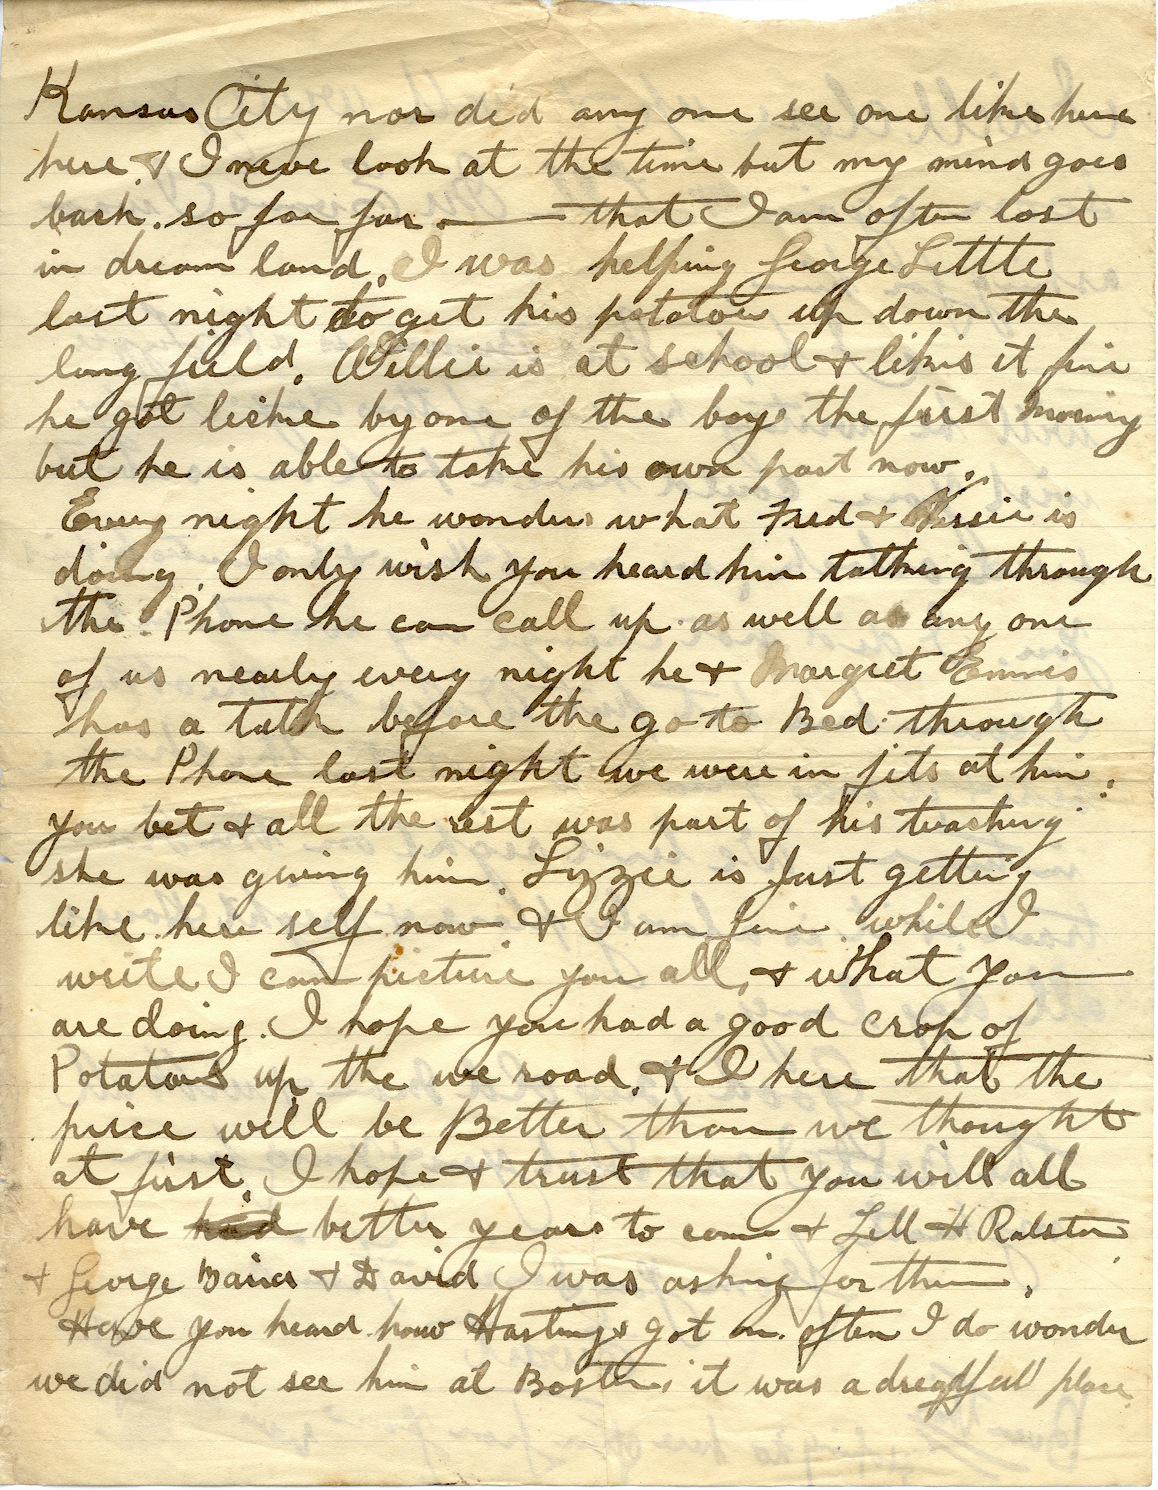 Kansas City nor did any one see one like here
here. & I neve look at the time but my mind goes
back. so far far. — that I am often lost
in dream land. I was helping George Little
last night to get his potatoes up down the
long field. Willie is at school & likes it fine
he got licke by one of the boys the first morning
but he is able to take his own part now.
Every night he wonders what Fred & is
doing. I only wish you heard him talking through
the Phone he can call up as well as any one
of us nearly every night he & Margret Ennis
has a talk before the go to Bed through
the Phone last night we were in fits at him.
you bet & all the rest was part of his teaching
she was giving him. Lizzie is Just getting
like here self now & I am fine while I
write I can picture you all, & what you
are doing. I hope you had a good crop of
Potatoes up the we road. & I here that the
price will be Better than we thought
at first. I hope & trust that you will all
have had better years to come & Tell H Ralston
& George Baird & David I was asking for them.
Have you heard how Hastings got on. often I do wonder
we did not see him at Boston, it was a dreadful place.